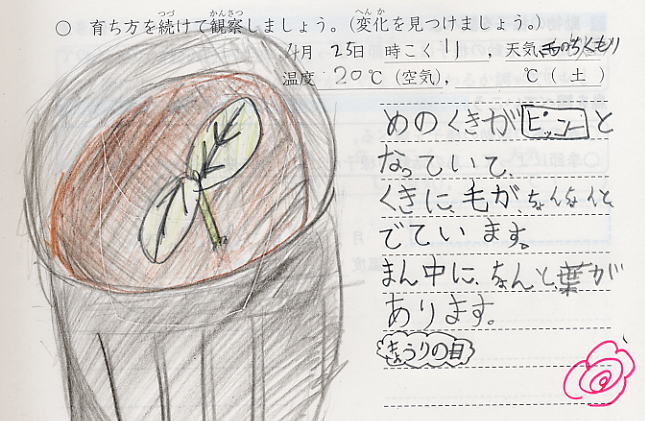 ○ 育ち方を続けて観察しましょう。(変化を見つけましょう。)
つづ かんさつ へんか
4月 25日 時こく 11 , 天気 雨のちくもり
温度 20℃ (空気), ℃ (土)
めのくきがピンーと
なっていて、
くきに、毛が、なんなんと、
でています。
まん中に、なんと、葉が
あります。
きゅうりの目